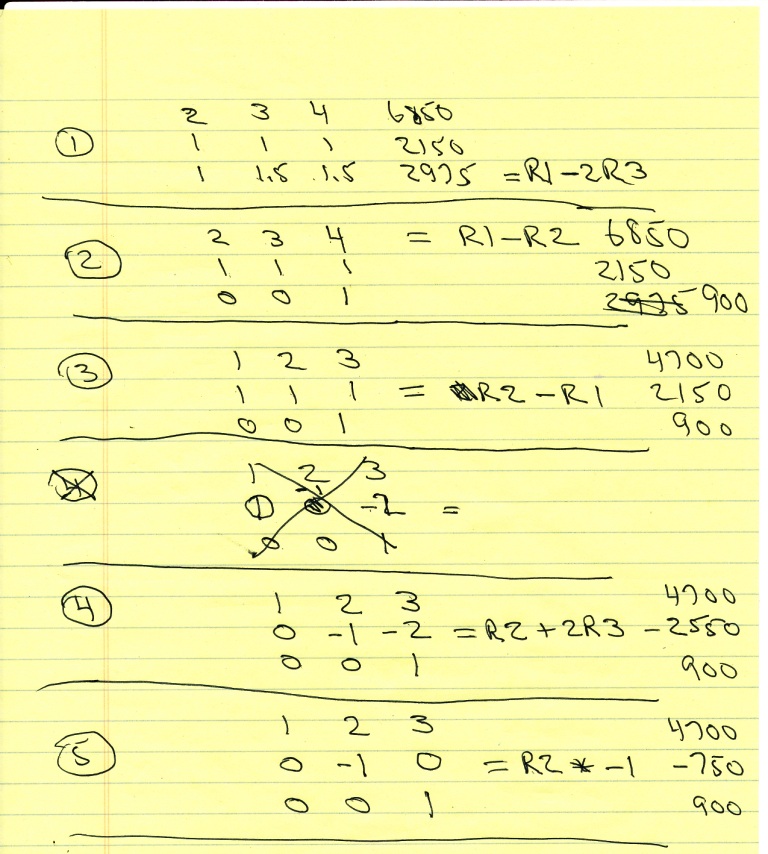 2 3 4 6850
① 1 1 1 2150
1 1.5 1.5 2975 =R1-2R3
② 2 3 4 = R1-R2 6850
1 1 1 2150
0 0 1 2975 900
③ 1 2 3 4700
1 1 1 = R2-R1 2150
0 0 1 900
1 2 3
4 0 -1 -2 =
0 0 1
④ 1 2 3 4700
0 -1 -2 =R2+2R3 -2550
0 0 1 900
1 2 3 4700
⑤ 0 -1 0 =R2*-1 -750
0 0 1 900